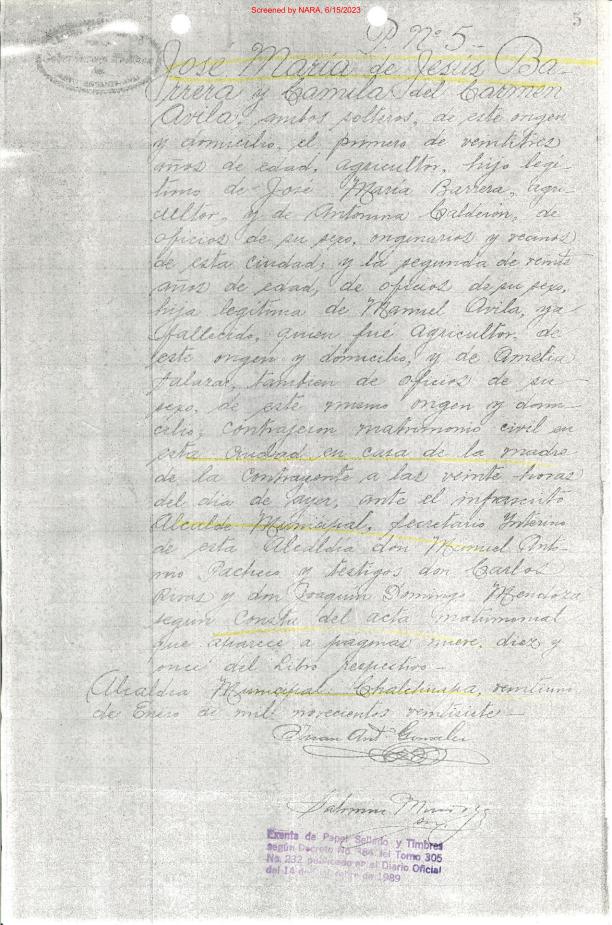 Screened by NARA, 6/15/2023
5
P. Nº 5-
José María de Jesús Ba-
rrera y Camila del Carmen
Avila, ambos solteros, de este origen
y domicilio, el primero de veintitres
años de edad, agricultor, hijo legí-
timo de José María Barrera, agri-
cultor, y de Antonina Calderón, de
oficios de su sexo, originarios y vecinos
de esta ciudad; y la segunda de veinte
años de edad, de oficios de su sexo,
hija legítima de Manuel Avila, ya
fallecido, quien fué agricultor, de
este origen y domicilio, y de Amelia
Salazar, tambien de oficios de su
sexo, de este mismo origen y domi-
cilio; contrajeron matrimonio civil en
esta ciudad en casa de la madre
de la contrayente a las veinte horas
del dia de ayer, ante el infrascrito
Alcalde Municipal, Secretario Interino
de esta Alcaldía don Manuel Anto-
nio Pacheco y testigos don Carlos
Rivas y don Joaquín Domingo Mendoza
según consta del acta matrimonial
que aparece a páginas nueve, diez y
once del Libro respectivo-
Alcaldía Municipal: Chalchuapa, veintiuno
de Enero de mil novecientos veintisiete-
Ant González
Exenta de Papel Sellado y Timbres
según Decreto No. del Tomo 305
No. 232 publicado en el Diario Oficial
del 14 de 1989